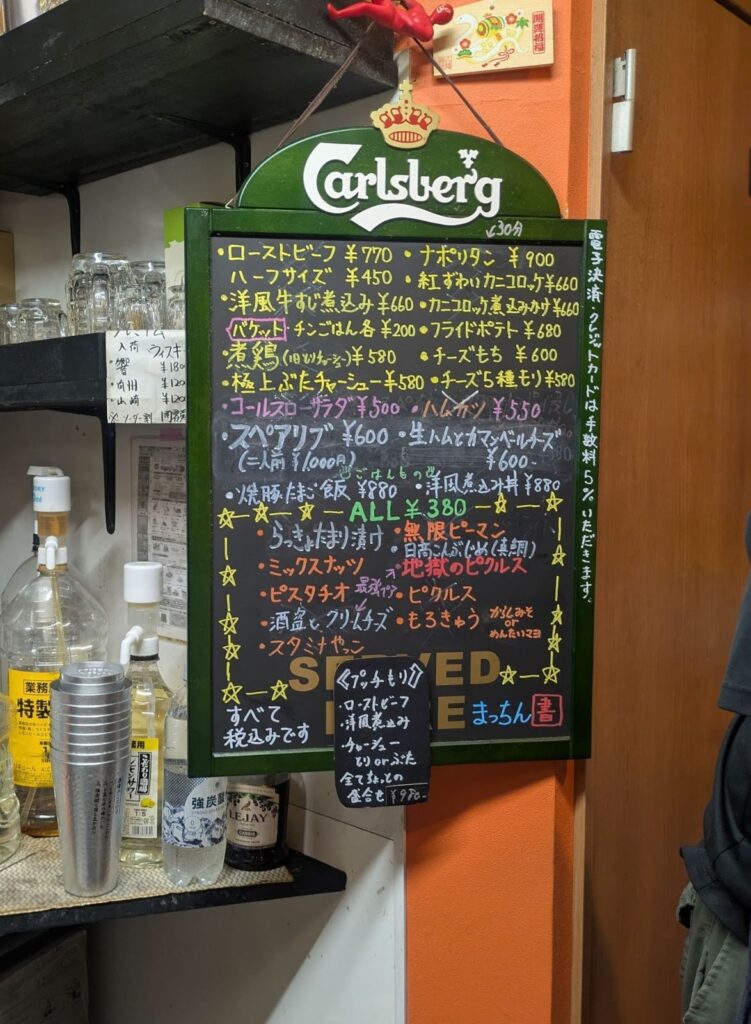 開運招福
Carlsberg
30分
・ローストビーフ ¥770
ハーフサイズ ¥450
・洋風牛すじ煮込み ¥660
バケット・チンごはん各 ¥200
・煮鶏(旧とりチャーシュー) ¥580
・極上ぶたチャーシュー ¥580
・コールスローサラダ ¥500
・スペアリブ ¥600
(二人前 ¥1000円)
・ナポリタン ¥900
・紅ずわいカニコロッケ ¥660
・カニコロッケ煮込みかけ ¥660
・フライドポテト ¥680
・チーズもち ¥600
・チーズ5種モリ ¥580
・ハムカツ ¥550
・生ハムとカマンベールチーズ
¥600-
ごはんもの
・焼豚たまご飯 ¥880
・洋風煮込み丼 ¥880
ALL ¥380
・らっきょたまり漬け
・ミックスナッツ
・ピスタチオ
・酒盗とクリームチーズ
・スタミナやっこ
・無限ピーマン
・日高こんぶじめ(真鯛)
・地獄のピクルス
・ピクルス
・もろきゅう
からしみそ
or
めんたいマヨ
SERVED
すべて
税込みです
まっちん 書
《プッチもり》
・ローストビーフ
・洋風煮込み
・チャーシュー
とり or ぶた
全てちょっとの
盛合せ ¥980-
電子決済・クレジットカードは手数料5%いただきます。
入荷 ウィスキ
・響 ¥180
¥120
・山崎 ¥120
業務用
特製
強炭酸
LEJAY
CASSIS